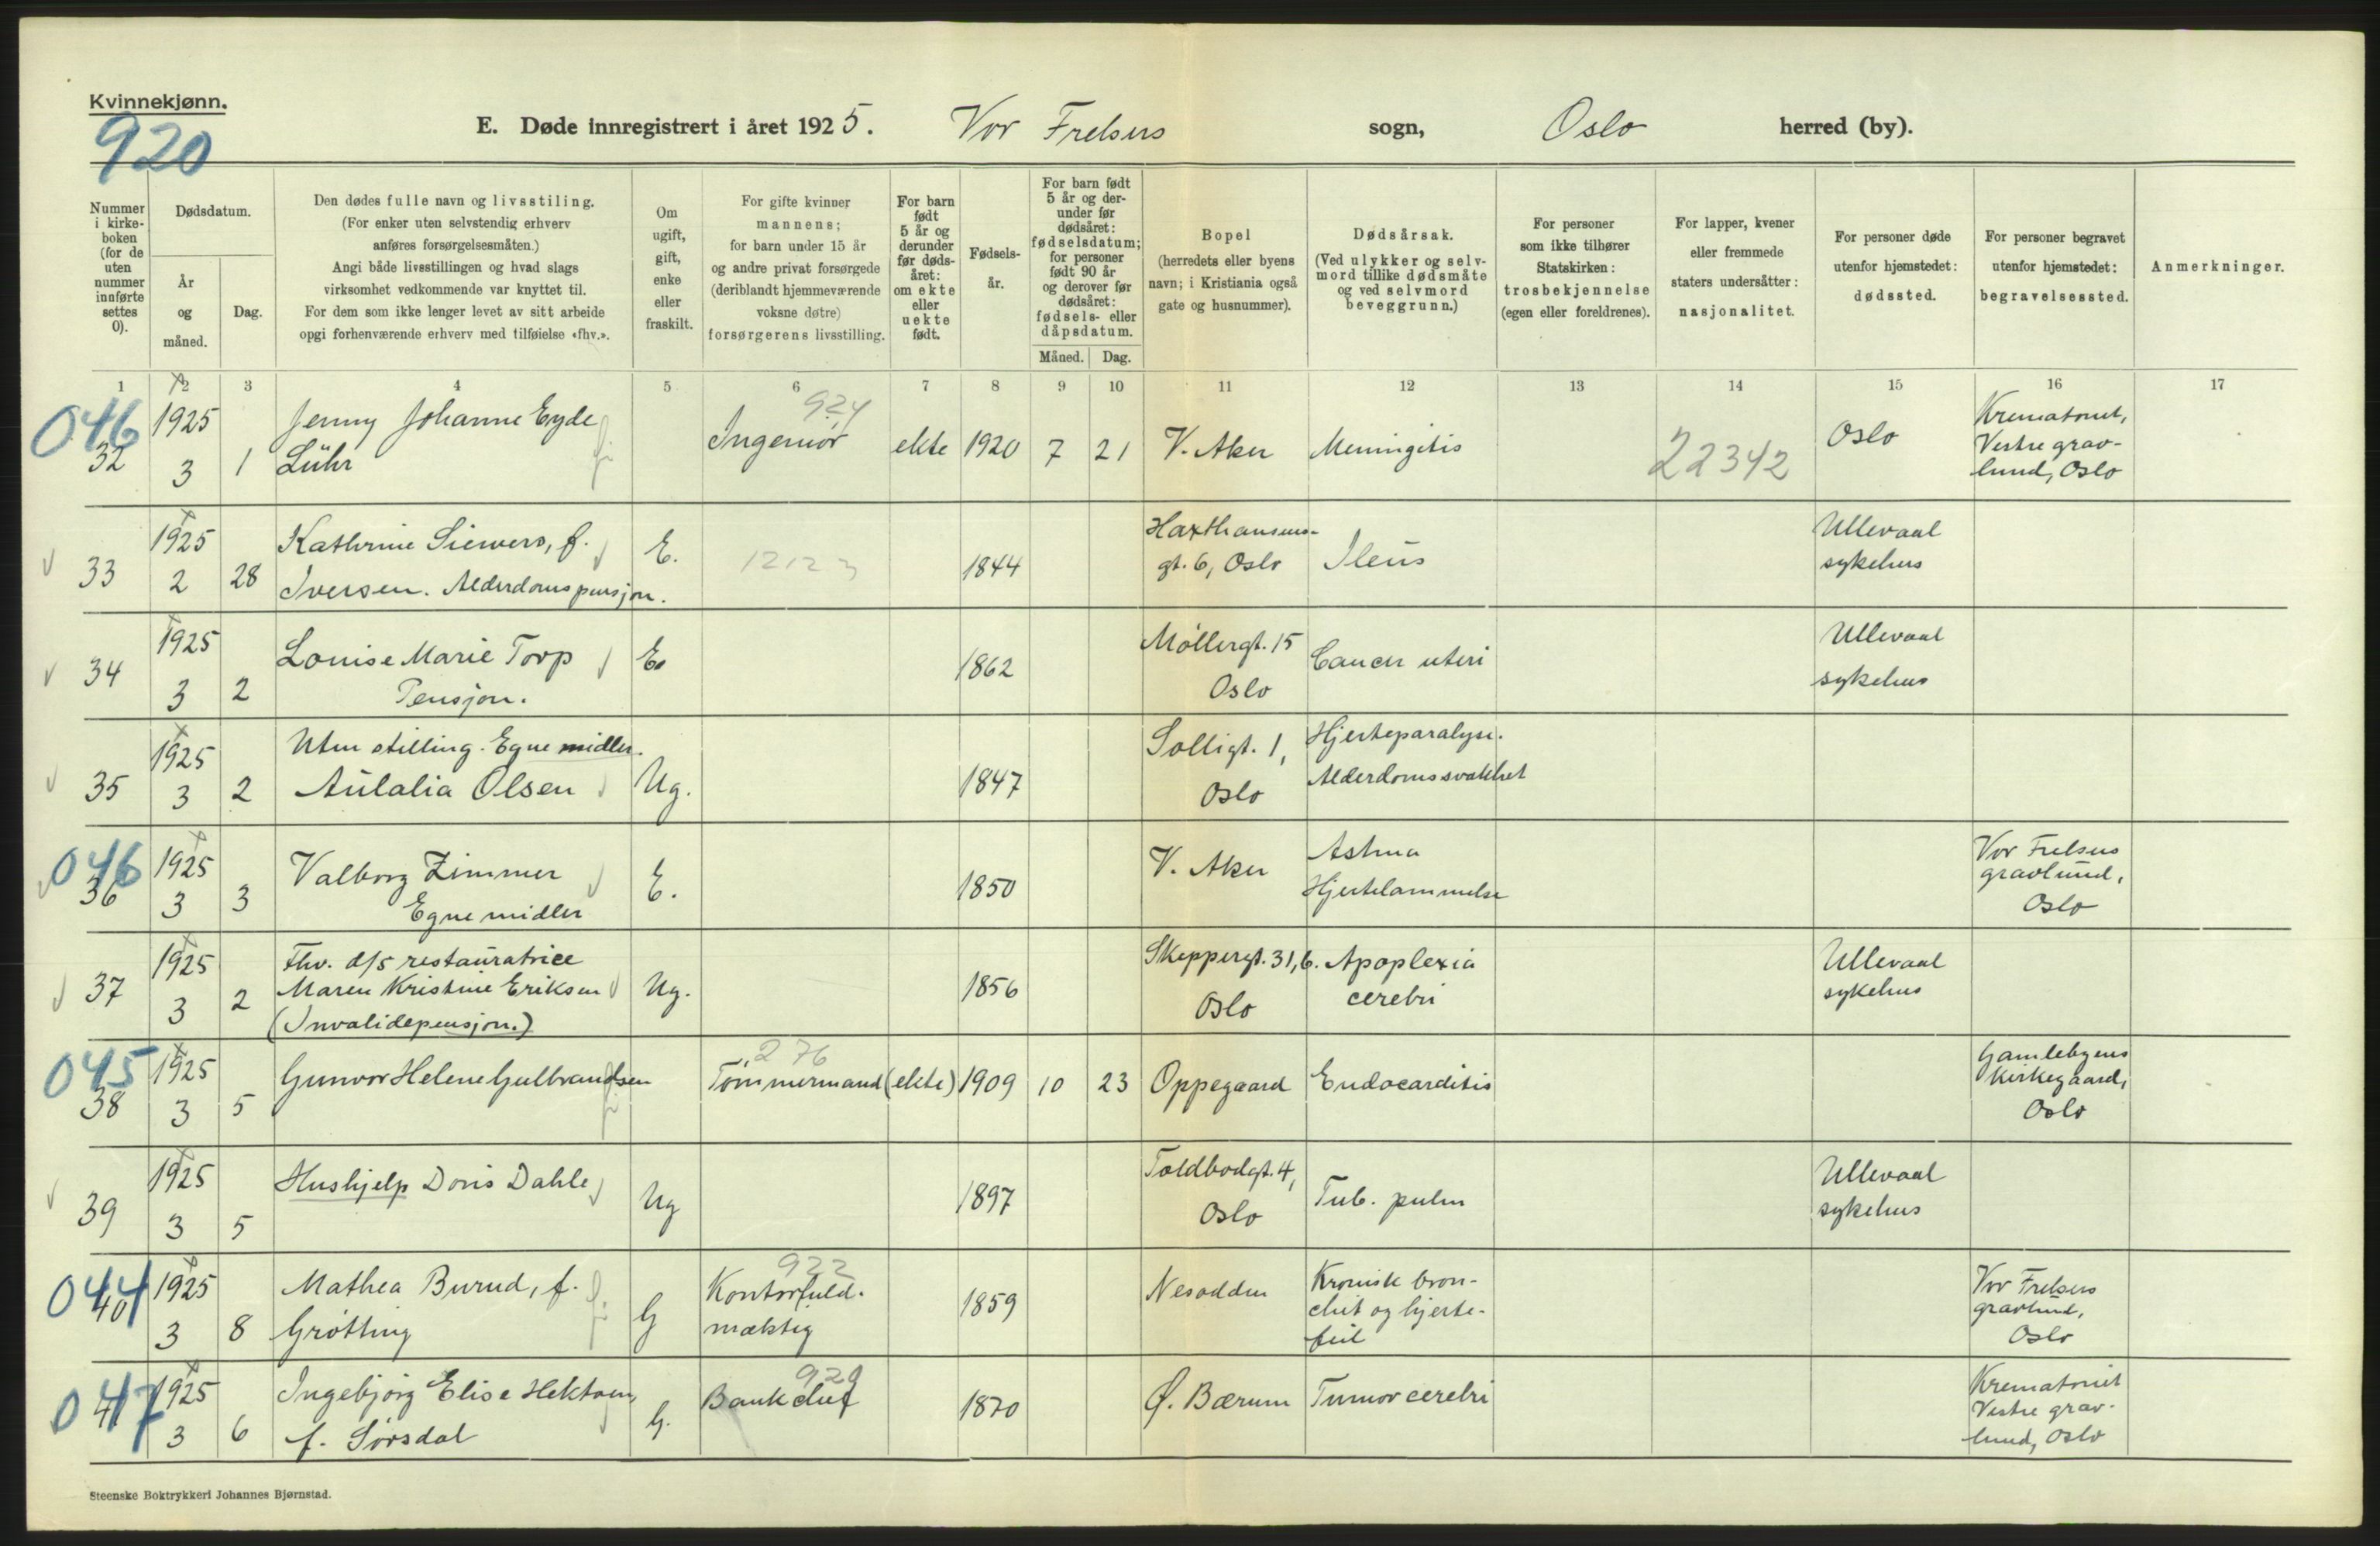 Kvinnekjønn.
920
E. Døde innregistrert i året 1925. Vor Frelsers sogn, Oslo herred (by).
Nummer i kirkeboken (for de uten nummer innførte settes 0).
Dødsdatum.
År og måned.
Dag.
Den dødes fulle navn og livsstilling.
(For enker uten selvstendig erhverv
anføres forsørgelsesmåten.)
Angi både livsstillingen og hvad slags
virksomhet vedkommende var knyttet til.
For dem som ikke lenger levet av sitt arbeide
opgi forhenværende erhverv med tilføielse «fhv.».
Om ugift, gift, enke eller fraskilt.
For gifte kvinner
mannens;
for barn under 15 år
og andre privat forsørgede
(deriblandt hjemmeværende
voksne døtre)
forsørgerens livsstilling.
For barn født 5 år og derunder før dødsåret: om ekte eller uekte født.
Fødselsår.
For barn født 5 år og derunder før dødsåret: fødselsdatum; for personer født 90 år og derover før dødsåret: fødsels- eller dåpsdatum.
Måned. Dag.
Bopel
(herredets eller byens
navn; i Kristiania også
gate og husnummer).
Dødsårsak.
(Ved ulykker og selvmord tillike dødsmåte og ved selvmord beveggrunn.)
For personer
som ikke tilhører
Statskirken:
trosbekjennelse
(egen eller foreldrenes).
For lapper, kvener
eller fremmede
staters undersåtter:
nasjonalitet.
For personer døde
utenfor hjemstedet:
dødssted.
For personer begravet
utenfor hjemstedet:
begravelsessted.
Anmerkninger.
1 2 3 4 5 6 7 8 9 10 11 12 13 14 15 16 17
046 32 1925 3 1 Jenny Johanne Eyde Lühr 924 Ingeniør ekte 1920 7 21 V. Aker Meningitis 22342 Oslo Krematoriet, Vestre gravlund, Oslo
33 1925 2 28 Kathrine Siewers, f. Iversen. Alderdomspensjon. E. 12123 1844 Haxthausens- gt. 6, Oslo Ileus Ullevaal sykehus
34 1925 3 2 Louise Marie Torp Pensjon. E. 1862 Møllergt. 15 Oslo Cancer uteri Ullevaal sykehus
35 1925 3 2 Uten stilling. Egne midler. Aulalia Olsen Ug. 1847 Solligt. 1, Oslo Hjerteparalyse. Alderdomssvakhet
046 36 1925 3 3 Valborg Zimmer Egne midler E. 1850 V. Aker Astma Hjertelammelse Vor Frelsers gravlund, Oslo
37 1925 3 2 Fhv. d/s restauratrice Maren Kristine Eriksen (Invalidepensjon.) Ug. 1856 Skeppergt. 31, 6. Oslo Apoplexia cerebri Ullevaal sykehus
045 38 1925 3 5 Gunvor Helene Gulbrandsen 276 Tømmermand (ekte) 1909 10 23 Oppegaard Endocarditis Gamlebyens Kirkegaard, Oslo
39 1925 3 5 Hushjelp Doris Dahle Ug 1897 Toldbodgt. 4, Oslo Tub. pulm Ullevaal sykehus
044 40 1925 3 8 Mathea Burud, f. Grøtting G 922 Kontorfuld- mæktig 1859 Nesodden Kronisk bron- chit og hjerte- feil Vor Frelsers gravlund, Oslo
047 41 1925 3 6 Ingebjørg Elise Hektoen, f. Sørsdal G. 929 Bankchef 1870 Ø. Bærum Tumor cerebri Krematoriet Vestre grav- lund, Oslo
Steenske Boktrykkeri Johannes Bjørnstad.